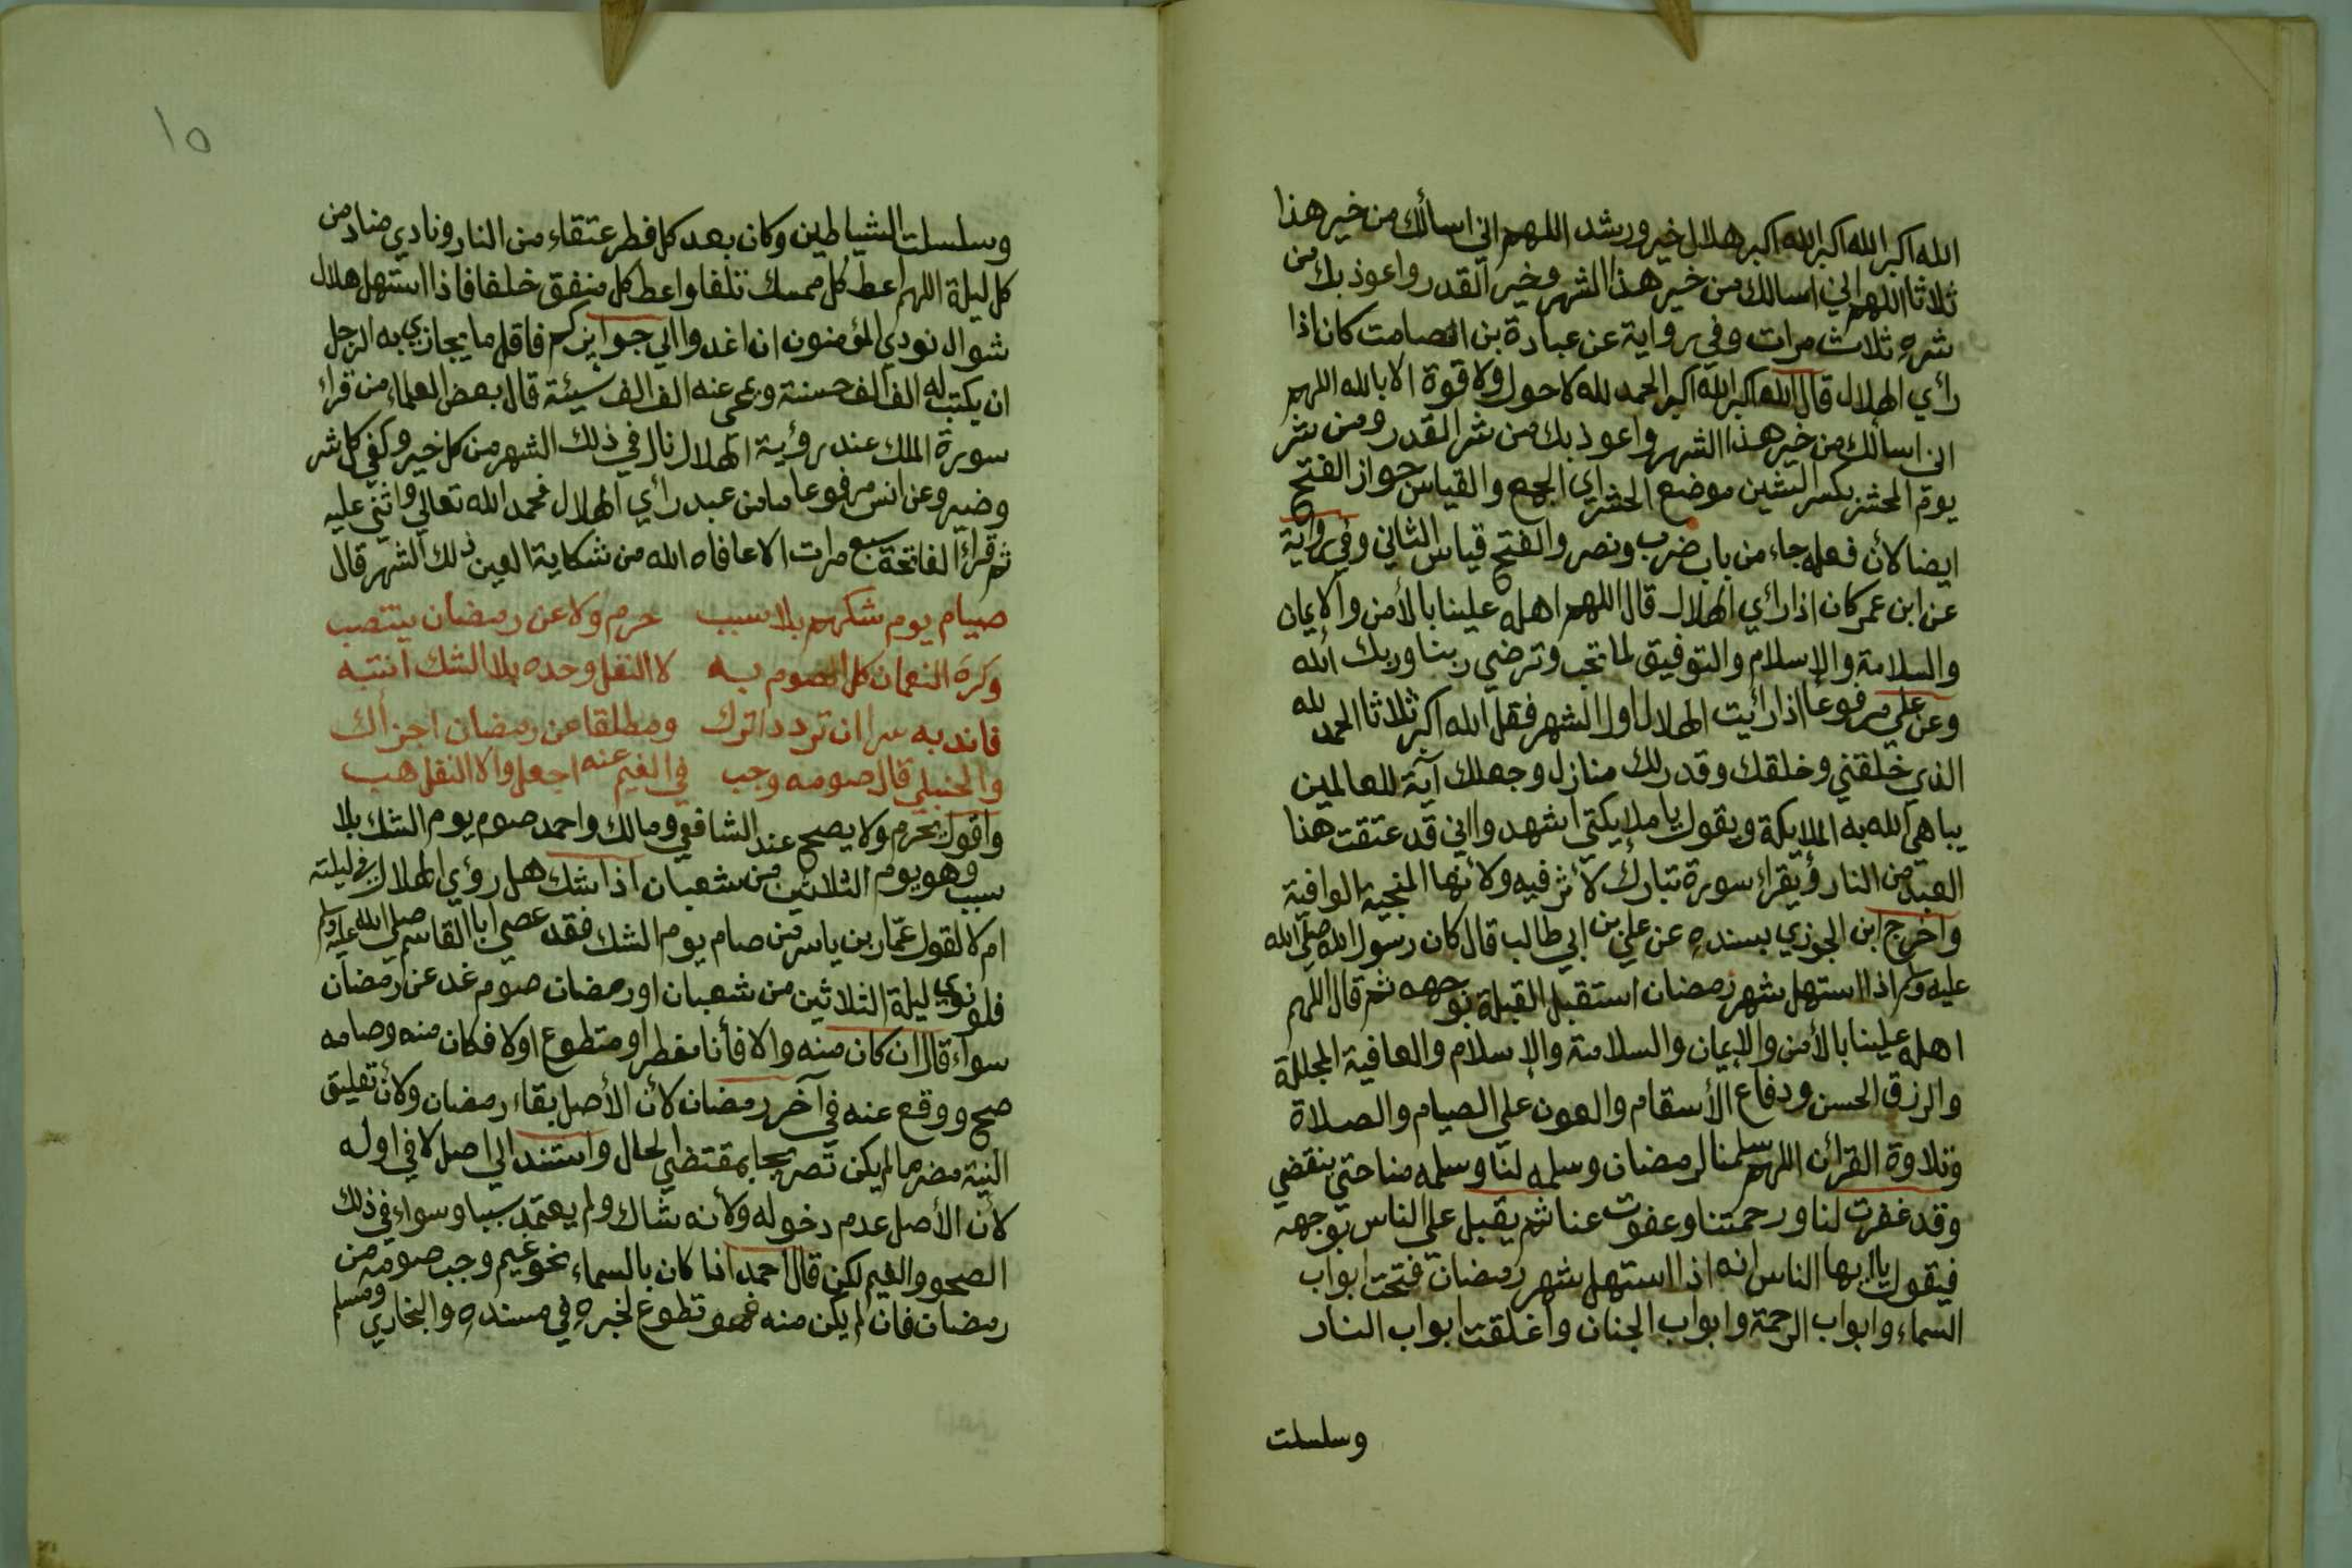 الله اكبر الله اكبر الله اكبر هلال خير ورشد اللهم اني اسألك من خير هذا
ثلاثا اللهم اني اسالك من خير هذا الشهر وخير القدر واعوذ بك من
شره ثلاث مرات وفي رواية عن عبادة بن الصامت كان اذا
رأي الهلال قال الله اكبر الله اكبر الحمد لله لا حول ولا قوة الا بالله اللهم
اني اسألك من خير هذا الشهر واعوذ بك من شر القدر ومن شر
يوم المحشر بكسر الشين موضع الحشر اي الجمع والقياس جواز الفتح
ايضا لأن فعله جاء من باب ضرب ونصر والفتح قياس الثاني وفي رواية
عن ابن عمر كان اذا رأي الهلال قال اللهم اهله علينا بالأمن والإيمان
والسلامة والإسلام والتوفيق لما تحب وترضي ربنا وربك الله
وعن علي مرفوعا اذا رأيت الهلال اول الشهر فقل الله اكبر ثلاثا الحمد لله
الذي خلقني وخلقك وقدر لك منازل وجعلك آية للعالمين
يباهي الله به الملايكة ويقول يا ملايكتي اشهدوا اني قد عتقت هذا
العبد من النار ويقراء سورة تبارك لأثر فيه ولأنها المنجية الواقية
واخرج ابن الجوزي بسنده عن علي بن ابي طالب قال كان رسول الله صلي الله
عليه وسلم اذا استهل شهر رمضان استقبل القبلة بوجهه ثم قال اللهم
اهله علينا بالأمن والإيمان والسلامة والإسلام والعافية المجللة
والرزق الحسن ودفاع الأسقام والعون علي الصيام والصلاة
وتلاوة القرآن اللهم سلمنا لرمضان وسلمه لنا وسلمه منا حتي ينقضي
وقد غفرت لنا ورحمتنا وعفوت عنا ثم يقبل علي الناس بوجهه
فيقول يا ايها الناس انه اذا استهل شهر رمضان فتحت ابواب
السماء وابواب الرحمة وابواب الجنان واغلقت ابواب النار
وسلسلت
١٥
وسلسلت الشياطين وكان بعد كل فطر عتقاء من النار ونادي مناد من
كل ليلة اللهم اعط كل ممسك تلفا واعط كل منفق خلفا فاذا استهل هلال
شوال نودي المؤمنون ان اغدوا الي جوايزكم فاقل ما يجازي به الرجل
ان يكتب له الف الف حسنة ويمحي عنه الف الف سيئة قال بعض العلماء من قراء
سورة الملك عند رؤية الهلال نال في ذلك الشهر من كل خير وكفي كل شر
وضير وعن انس مرفوعا ما من عبد رأي الهلال فحمد الله تعالي واثني عليه
ثم قراء الفاتحة سبع مرات الا عافاه الله من شكاية العين ذلك الشهر قال
صيام يوم شكهم بلا سبب حرم ولا عن رمضان ينتصب
وكره النعمان كل الصوم به لا النفل وحده بلا الشك انتبه
فاندبه سرا ان تردد اترك ومطلقا عن رمضان اجزأك
والحنبلي قال صومه وجب في الغيم عنه اجعل والا النفل هب
واقول يحرم ولا يصح عند الشافعي ومالك واحمد صوم يوم الشك بلا
سبب وهو يوم الثلاثين من شعبان اذا شك هل رؤي الهلال في ليلته
ام لا لقول عمّار بن ياسر من صام يوم الشك فقد عصي ابا القاسم صلي الله عليه وسلم
فلو نوي ليلة الثلاثين من شعبان او رمضان صوم غد عن رمضان
سواء قال ان كان منه والا فأنا مفطر او متطوع او لا فكان منه وصامه
صح ووقع عنه في آخر رمضان لأن الأصل بقاء رمضان ولأن تعليق
النية مضر ما لم يكن تصريحا بمقتضي الحال واستند الي اصل لا في اوله
لأن الأصل عدم دخوله ولأنه شاك ولم يعتمد سببا وسواء في ذلك
الصحو والغيم لكن قال احمد اذا كان بالسماء نحو غيم وجب صومه من
رمضان فان لم يكن منه فهو تطوع لخبره في مسنده والبخاري ومسلم